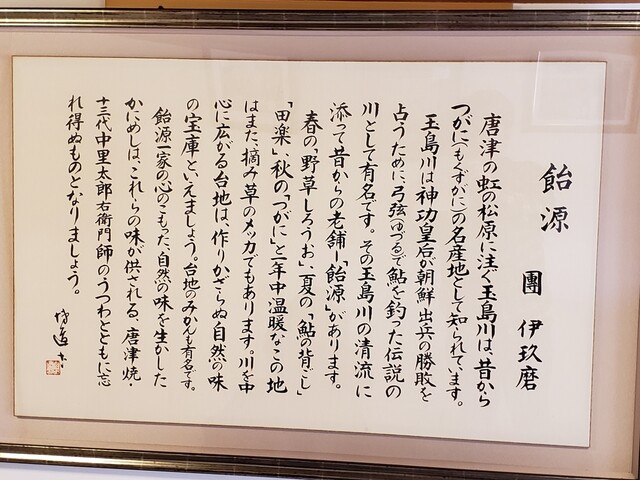 飴源
團 伊玖磨
唐津の虹の松原に注ぐ玉島川は、昔から
つがに(もくずがに)の名産地として知られています。
玉島川は神功皇后が朝鮮出兵の勝敗を
占うために、弓弦(ゆづる)で鮎を釣った伝説の
川として有名です。その玉島川の清流に
添って昔からの老舗―「飴源」があります。
春の「野草しろうお」、夏の「鮎の背ごし」
「田楽」、秋の「つがに」と一年中温暖なこの地
はまた、摘み草のメッカでもあります。川を中
心に広がる台地は、作りかざらぬ自然の味
の宝庫といえましょう。台地のみかんも有名です。
飴源一家の心のこもった、自然の味を生かした
かにめしは、これらの味が供される、唐津焼・
十三代中里太郎右衛門師のうつわとともに忘
れ得ぬものとなりましょう。